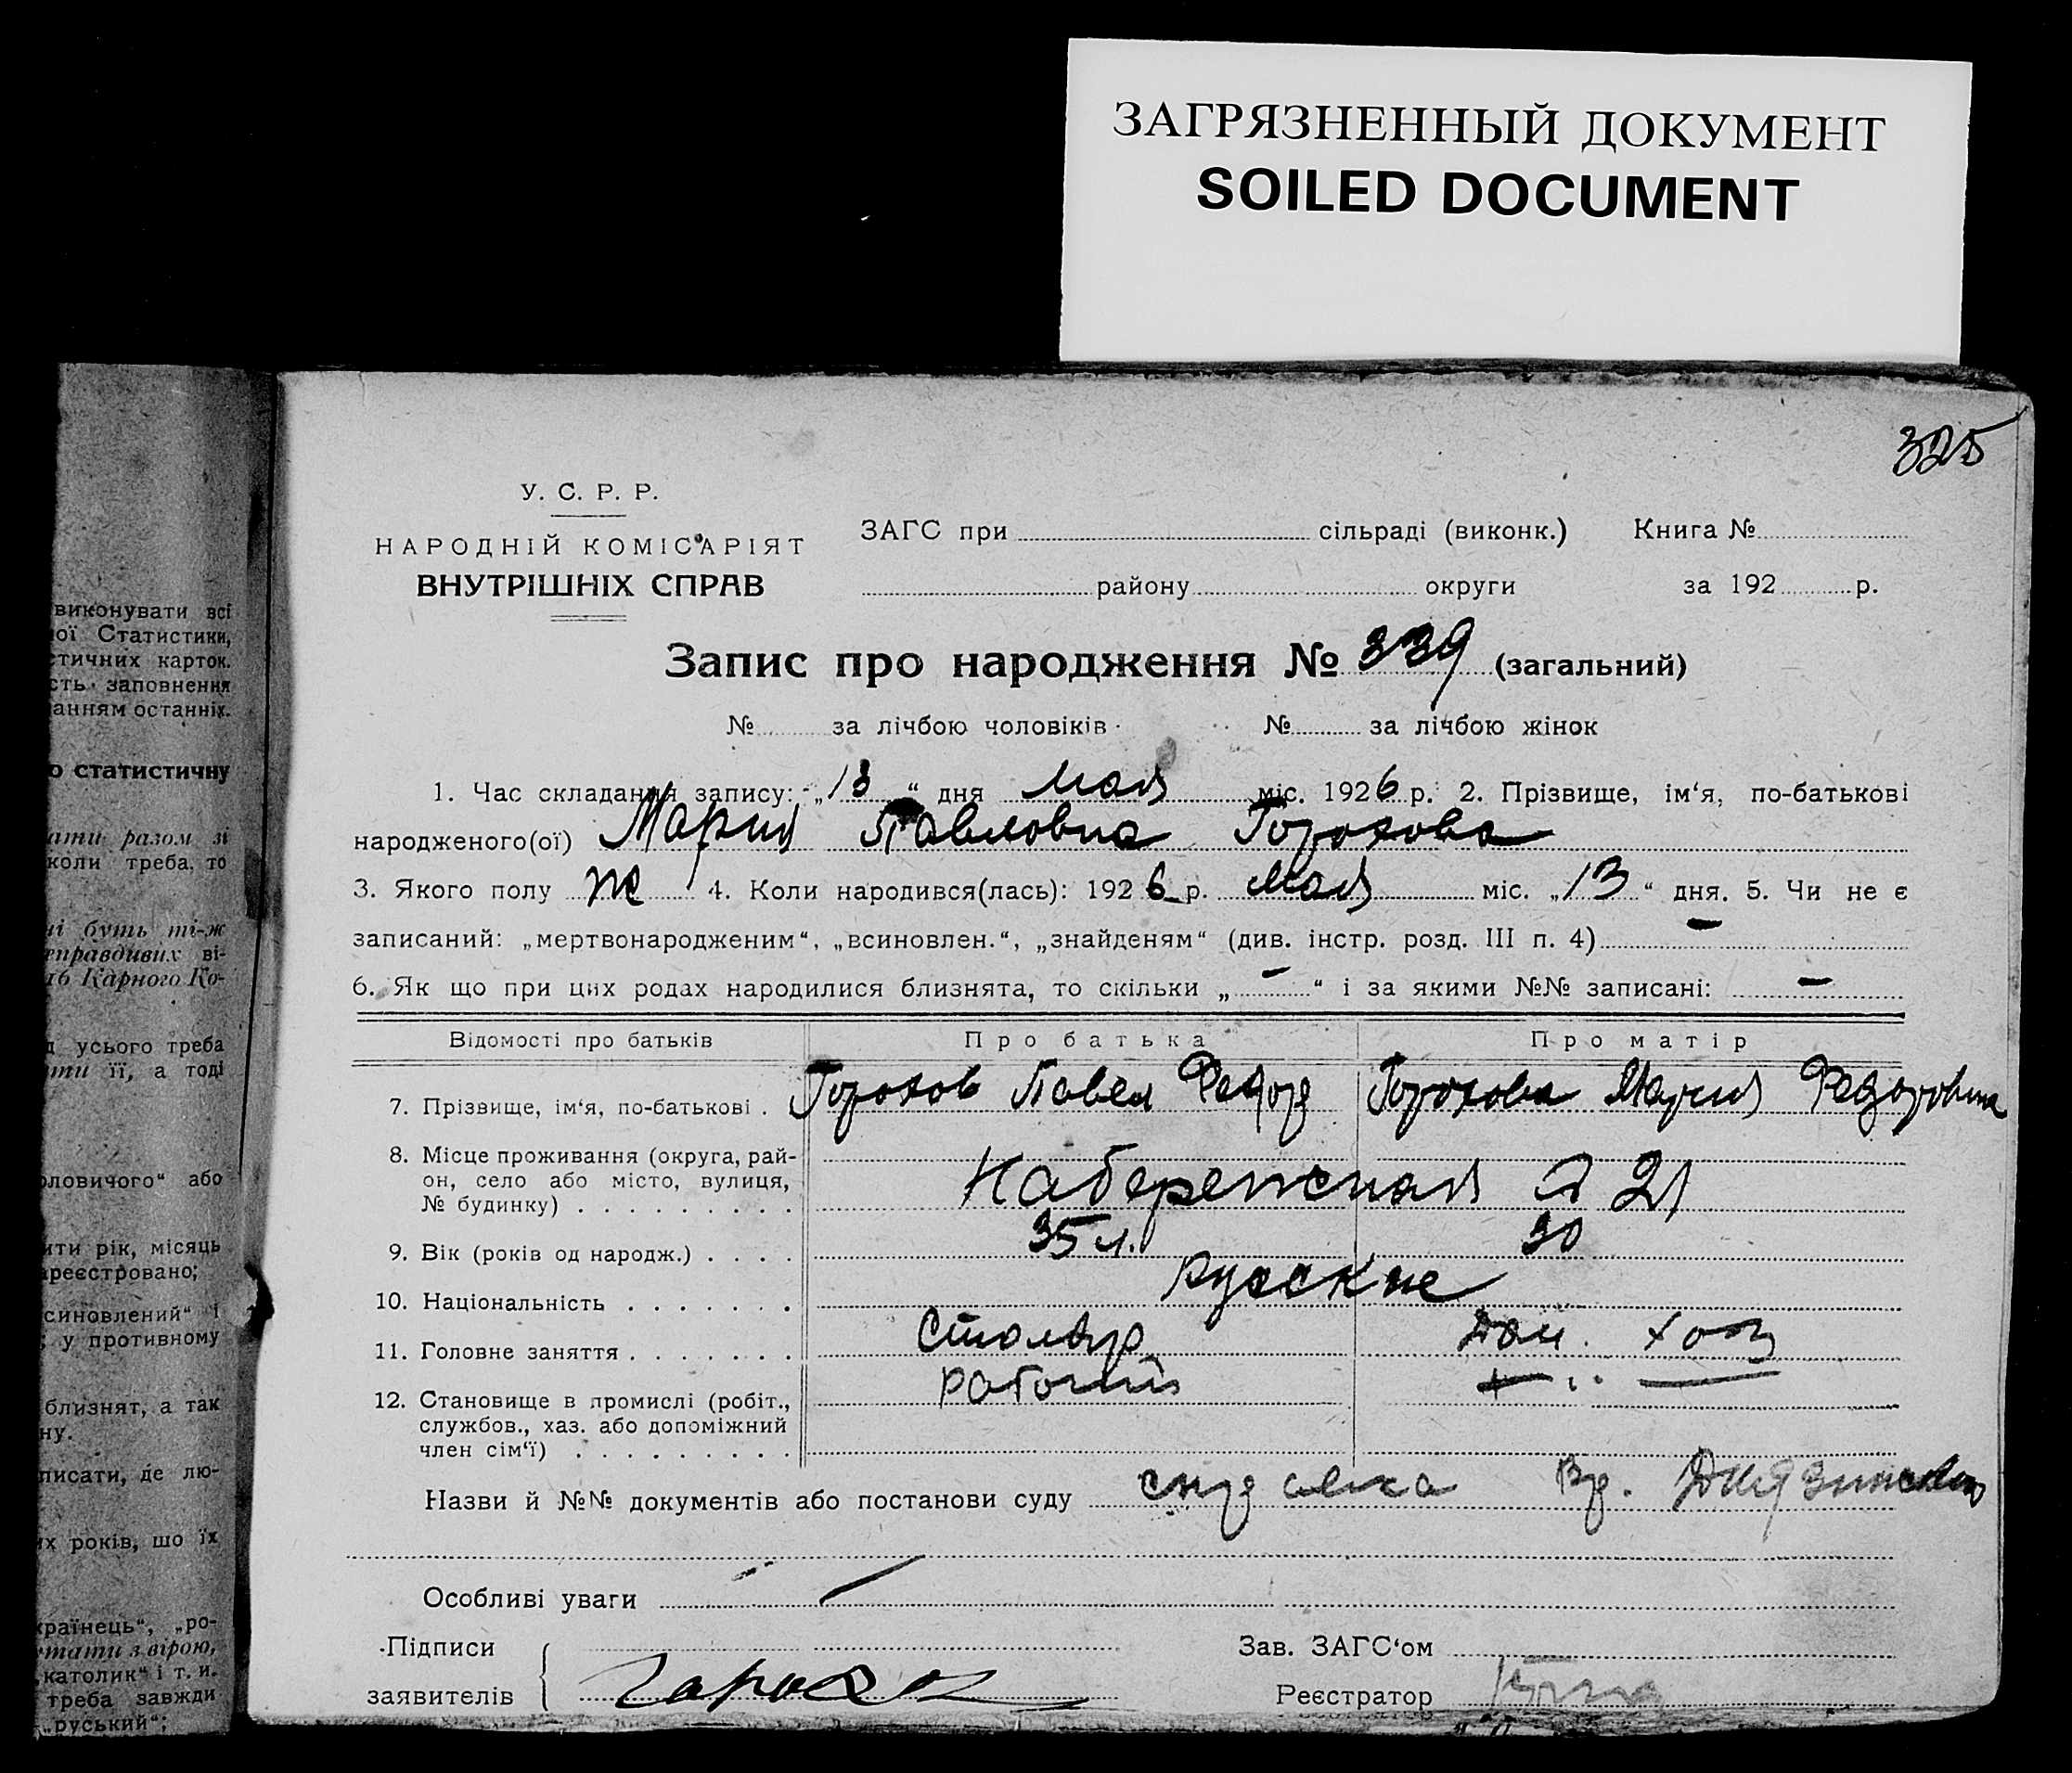 ЗАГРЯЗНЕННЫЙ ДОКУМЕНТ
SOILED DOCUMENT
325
У. С. Р. Р.
НАРОДНІЙ КОМІСАРІЯТ
ВНУТРІШНІХ СПРАВ
ЗАГС при сільраді (виконк.) Книга №
району округи за 192 р.
Запис про народження № 339 (загальний)
№ за лічбою чоловіків № за лічбою жінок
1. Час складання запису: „13“ дня мая міс. 1926 р. 2. Прізвище, ім‘я, по-батькові
народженого(ої) Мария Павловна Горохова
3. Якого полу ж 4. Коли народився(лась): 1926 р. мая міс. „13“ дня. 5. Чи не є
записаний: „мертвонародженим“, „всиновлен.“, „знайденям“ (див. інстр. розд. III п. 4) –
6. Як що при цих родах народилися близнята, то скільки „–“ і за якими №№ записані: –
Відомості про батьків Про батька Про матір
7. Прізвище, ім‘я, по-батькові . Горохов Павел Федор Горохова Мария Федоровна
8. Місце проживання (округа, рай-
он, село або місто, вулиця,
№ будинку) . . . . . . . . . Набережная д 21
9. Вік (років од народж.) . . . . 35 л. 30
10. Національність . . . . . . . русские
11. Головне заняття . . . . . . . столяр Дом. хоз
12. Становище в промислі (робіт.,
службов., хаз. або допоміжний
член сім‘ї) . . . . . . . . . рабочий
Назви й №№ документів або постанови суду Вр.
Особливі уваги
Підписи
заявителів
Зав. ЗАГС‘ом
Реєстратор
виконувати всі
ої Статистики,
тичних карток.
сть заповнення
анням останніх.
о статистичну
ати разом зі
коли треба, то
ні буть ті-ж
правдивих ві-
16 Карного Ко-
усього треба
її, а тоді
оловичого“ або
ити рік, місяць
реєстровано;
синовлений“ і
у противному
близнят, а так
ну.
писати, де лю-
их років, що їх
країнець“, „ро-
тати з вірою,
католик“ і т. и.
треба завжди
„руський“;